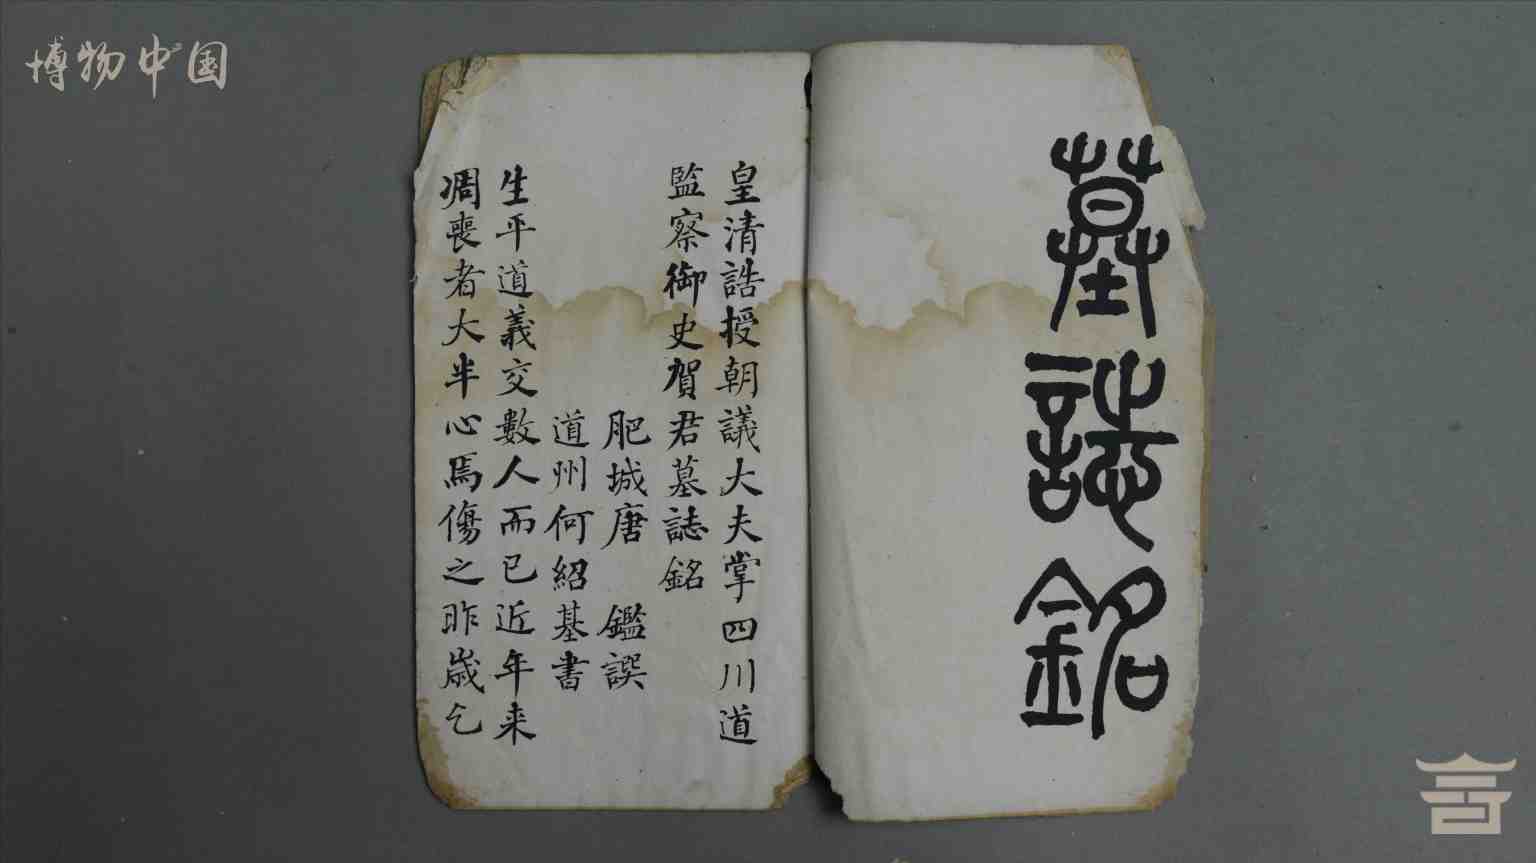 博物中国
墓誌銘
皇清誥授朝議大夫掌四川道
監察御史賀君墓誌銘
肥城唐 鑑譔
道州何紹基書
生平道義交數人而已近年来
凋喪者大半心焉傷之昨歲乞